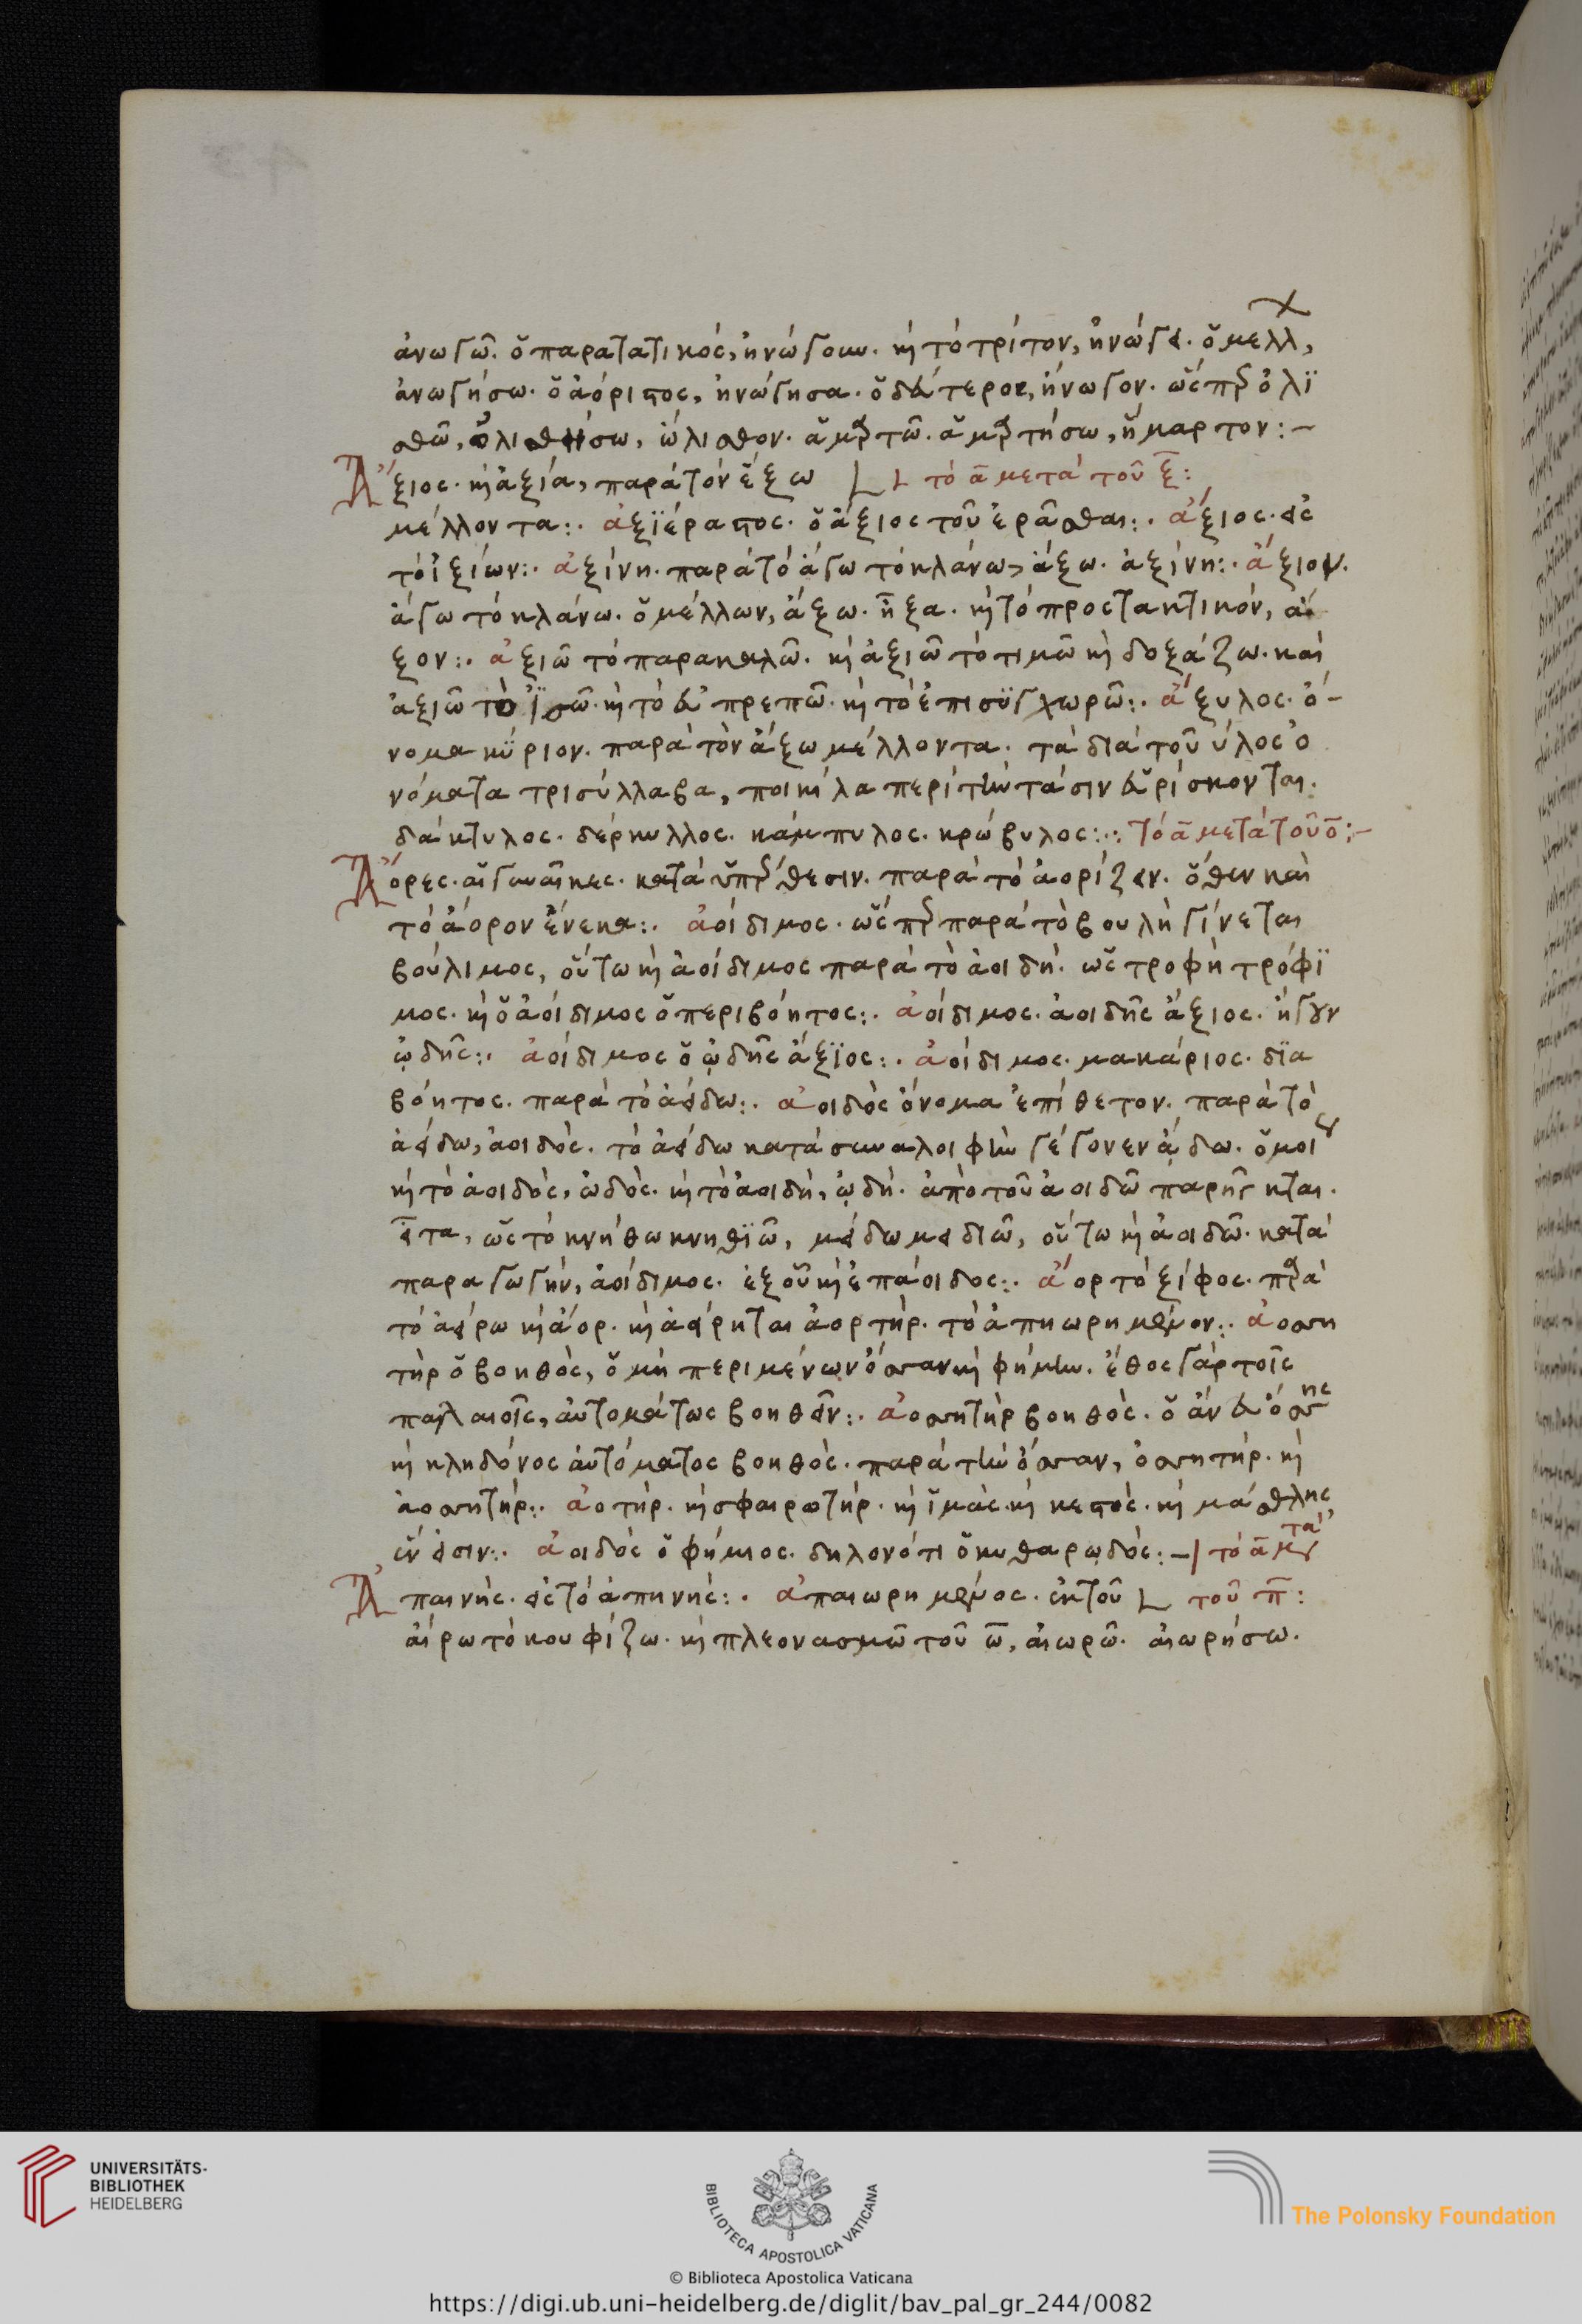 ἀνωγῶ. ὁ παρατατικός, ἠνώγουν. καὶ τὸ τρίτον, ἠνώγει. ὁ μέλλ,
ἀνωγήσω. ὁ ἀόριστος, ἠνώγησα. ὁ δεύτερος, ἤνωγον. ὥσπερ ὀλι
σθῶ, ὀλισθήσω, ὤλισθον. ἁμαρτῶ. ἁμαρτήσω, ἥμαρτον:-
Ἄξιος. καὶ ἀξία, παρὰ τὸν ἄξω τὸ α μετὰ τοῦ ξ:
μέλλοντα:. ἀξιέραστος. ὁ ἄξιος τοῦ ἐρᾶσθαι:. ἄξιος. εἰς
τὸ ἰξίων:. ἀξίνη. παρὰ τὸ ἄγω τὸ κλάνω, ἄξω. ἀξίνη:. ἄξιον.
ἄγω τὸ κλάνω. ὁ μέλλων, ἄξω. ἦξα. καὶ τὸ προστακτικόν, ἄ
ξον:. ἀξιῶ τὸ παρακαλῶ. καὶ ἀξιῶ τὸ τιμῶ καὶ δοξάζω. καὶ
ἀξιῶ τὸ ἰσῶ. καὶ τὸ εὐπρεπῶ. καὶ τὸ ἐπισυγχωρῶ:. ἄξυλος. ὄ-
νομα κύριον. παρὰ τὸν ἄξω μέλλοντα. τὰ διὰ τοῦ ύλος ὀ
νόματα τρισύλλαβα, ποικίλα περὶ τὴν τάσιν εὑρίσκονται.
δάκτυλος. δέρκυλλος. κάμπυλος. κρώβυλος:.: τὸ α μετὰ τοῦ ο:-
Ἄορες. αἱ γυναῖκες. καθ' ὑπέρθεσιν. παρὰ τὸ ἀορίζειν. ὅθεν καὶ
τὸ ἄορον ἕνεκα:. ἀοίδιμος. ὥσπερ παρὰ τὸ βουλὴ γίνεται
βούλιμος, οὕτω καὶ ἀοίδιμος παρὰ τὸ ἀοιδή. ὡς τροφὴ τρόφι
μος. καὶ ὁ ἀοίδιμος ὁ περιβόητος:. ἀοίδιμος. ἀοιδῆς ἄξιος. ἤγουν
ᾠδῆς:. ἀοίδιμος ὁ ᾠδῆς ἄξιος:. ἀοίδιμος. μακάριος. δια
βόητος. παρὰ τὸ ἀείδω:. ἀοιδὸς ὄνομα ἐπίθετον. παρὰ τὸ
ἀείδω, ἀοιδός. τὸ ἀείδω κατὰ συναλοιφὴν γέγονεν ᾄδω. ὁμοίως
καὶ τὸ ἀοιδός, ᾠδός. καὶ τὸ ἀοιδή, ᾠδή. ἀπὸ τοῦ ἀοιδῶ παρῆκται.
εἶτα, ὡς τὸ κνήθω κνηθιῶ, μείδω μειδιῶ, οὕτω καὶ ἀοιδῶ. κατὰ
παραγωγήν, ἀοίδιμος. ἐξ οὗ καὶ ἐπάοιδος:. ἄορ τὸ ξίφος. παρὰ
τὸ ἀείρω καὶ ἄορ. καὶ ἀείρηται ἀορτήρ. τὸ ἀπῃωρημένον:. ἀοσση
τὴρ ὁ βοηθός, ὁ μὴ περιμένων ὄσσαν καὶ φήμην. ἔθος γὰρ τοῖς
παλαιοῖς, αὐτομάτως βοηθεῖν:. ἀοσσητὴρ βοηθός. ὁ ἄνευ ὄσσης
καὶ κληδόνος αὐτόματος βοηθός. παρὰ τὴν ὄσσαν, ὀσσητήρ. καὶ
ἀοσσητήρ:. ἀοτήρ. καὶ σφαιρωτήρ. καὶ ἱμάς. καὶ κεστός. καὶ μάσθλης
ἕν εἰσιν:. ἀοιδὸς ὁ φήμιος. δηλονότι ὁ κιθαρῳδός:- τὸ α μετὰ
Ἀπαινής. εἰς τὸ ἀπηνής:. ἀπαιωρημένος. ἐκ τοῦ τοῦ π:
αἴρω τὸ κουφίζω. καὶ πλεονασμῶ τοῦ ω, αἰωρῶ. αἰωρήσω.
UNIVERSITÄTS-
BIBLIOTHEK
HEIDELBERG
BIBLIOTECA APOSTOLICA VATICANA
The Polonsky Foundation
© Biblioteca Apostolica Vaticana
https://digi.ub.uni-heidelberg.de/diglit/bav_pal_gr_244/0082